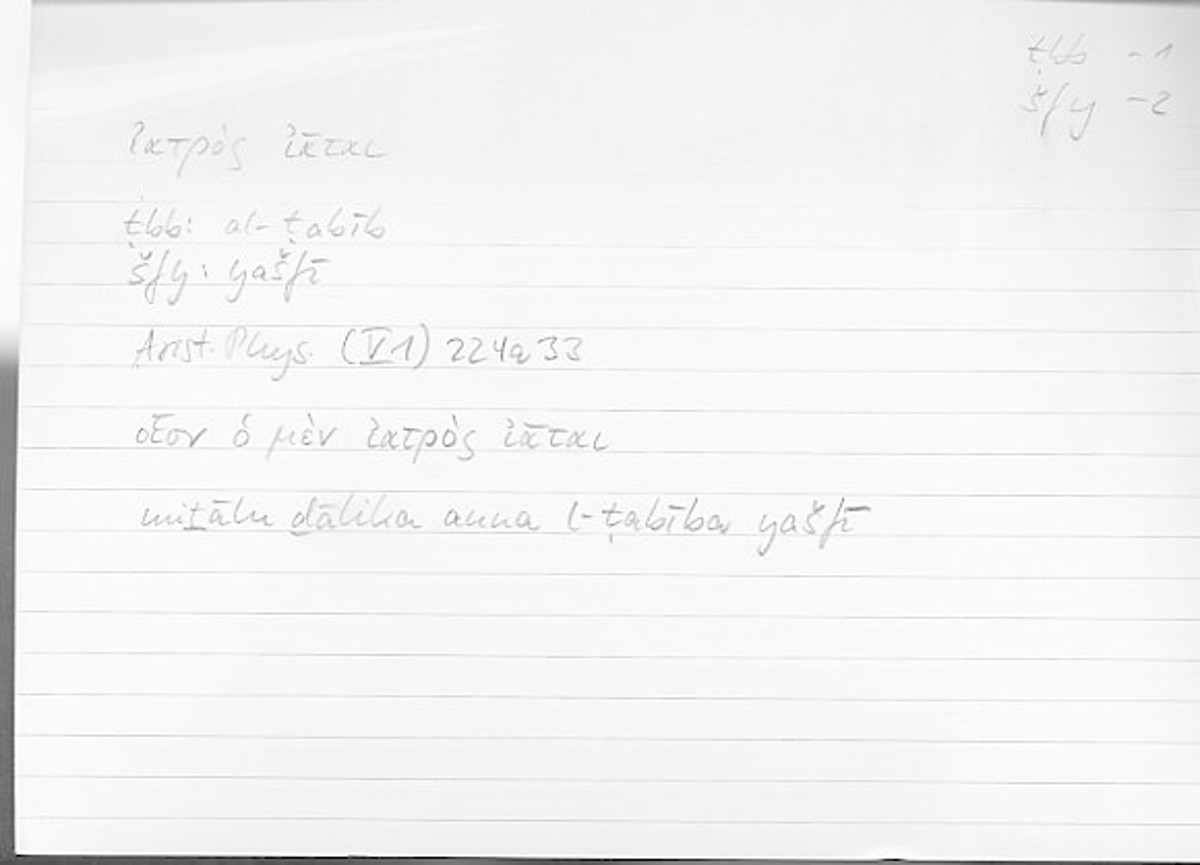 ṭbb - 1
šfy - 2
ἰατρὸς ἰᾶται
ṭbb: al-ṭabīb
šfy: yašfī
Arist. Phys. (V 1) 224a33
οἷον ὁ μὲν ἰατρὸς ἰᾶται
miṯālu ḏālika anna l-ṭabība yašfī